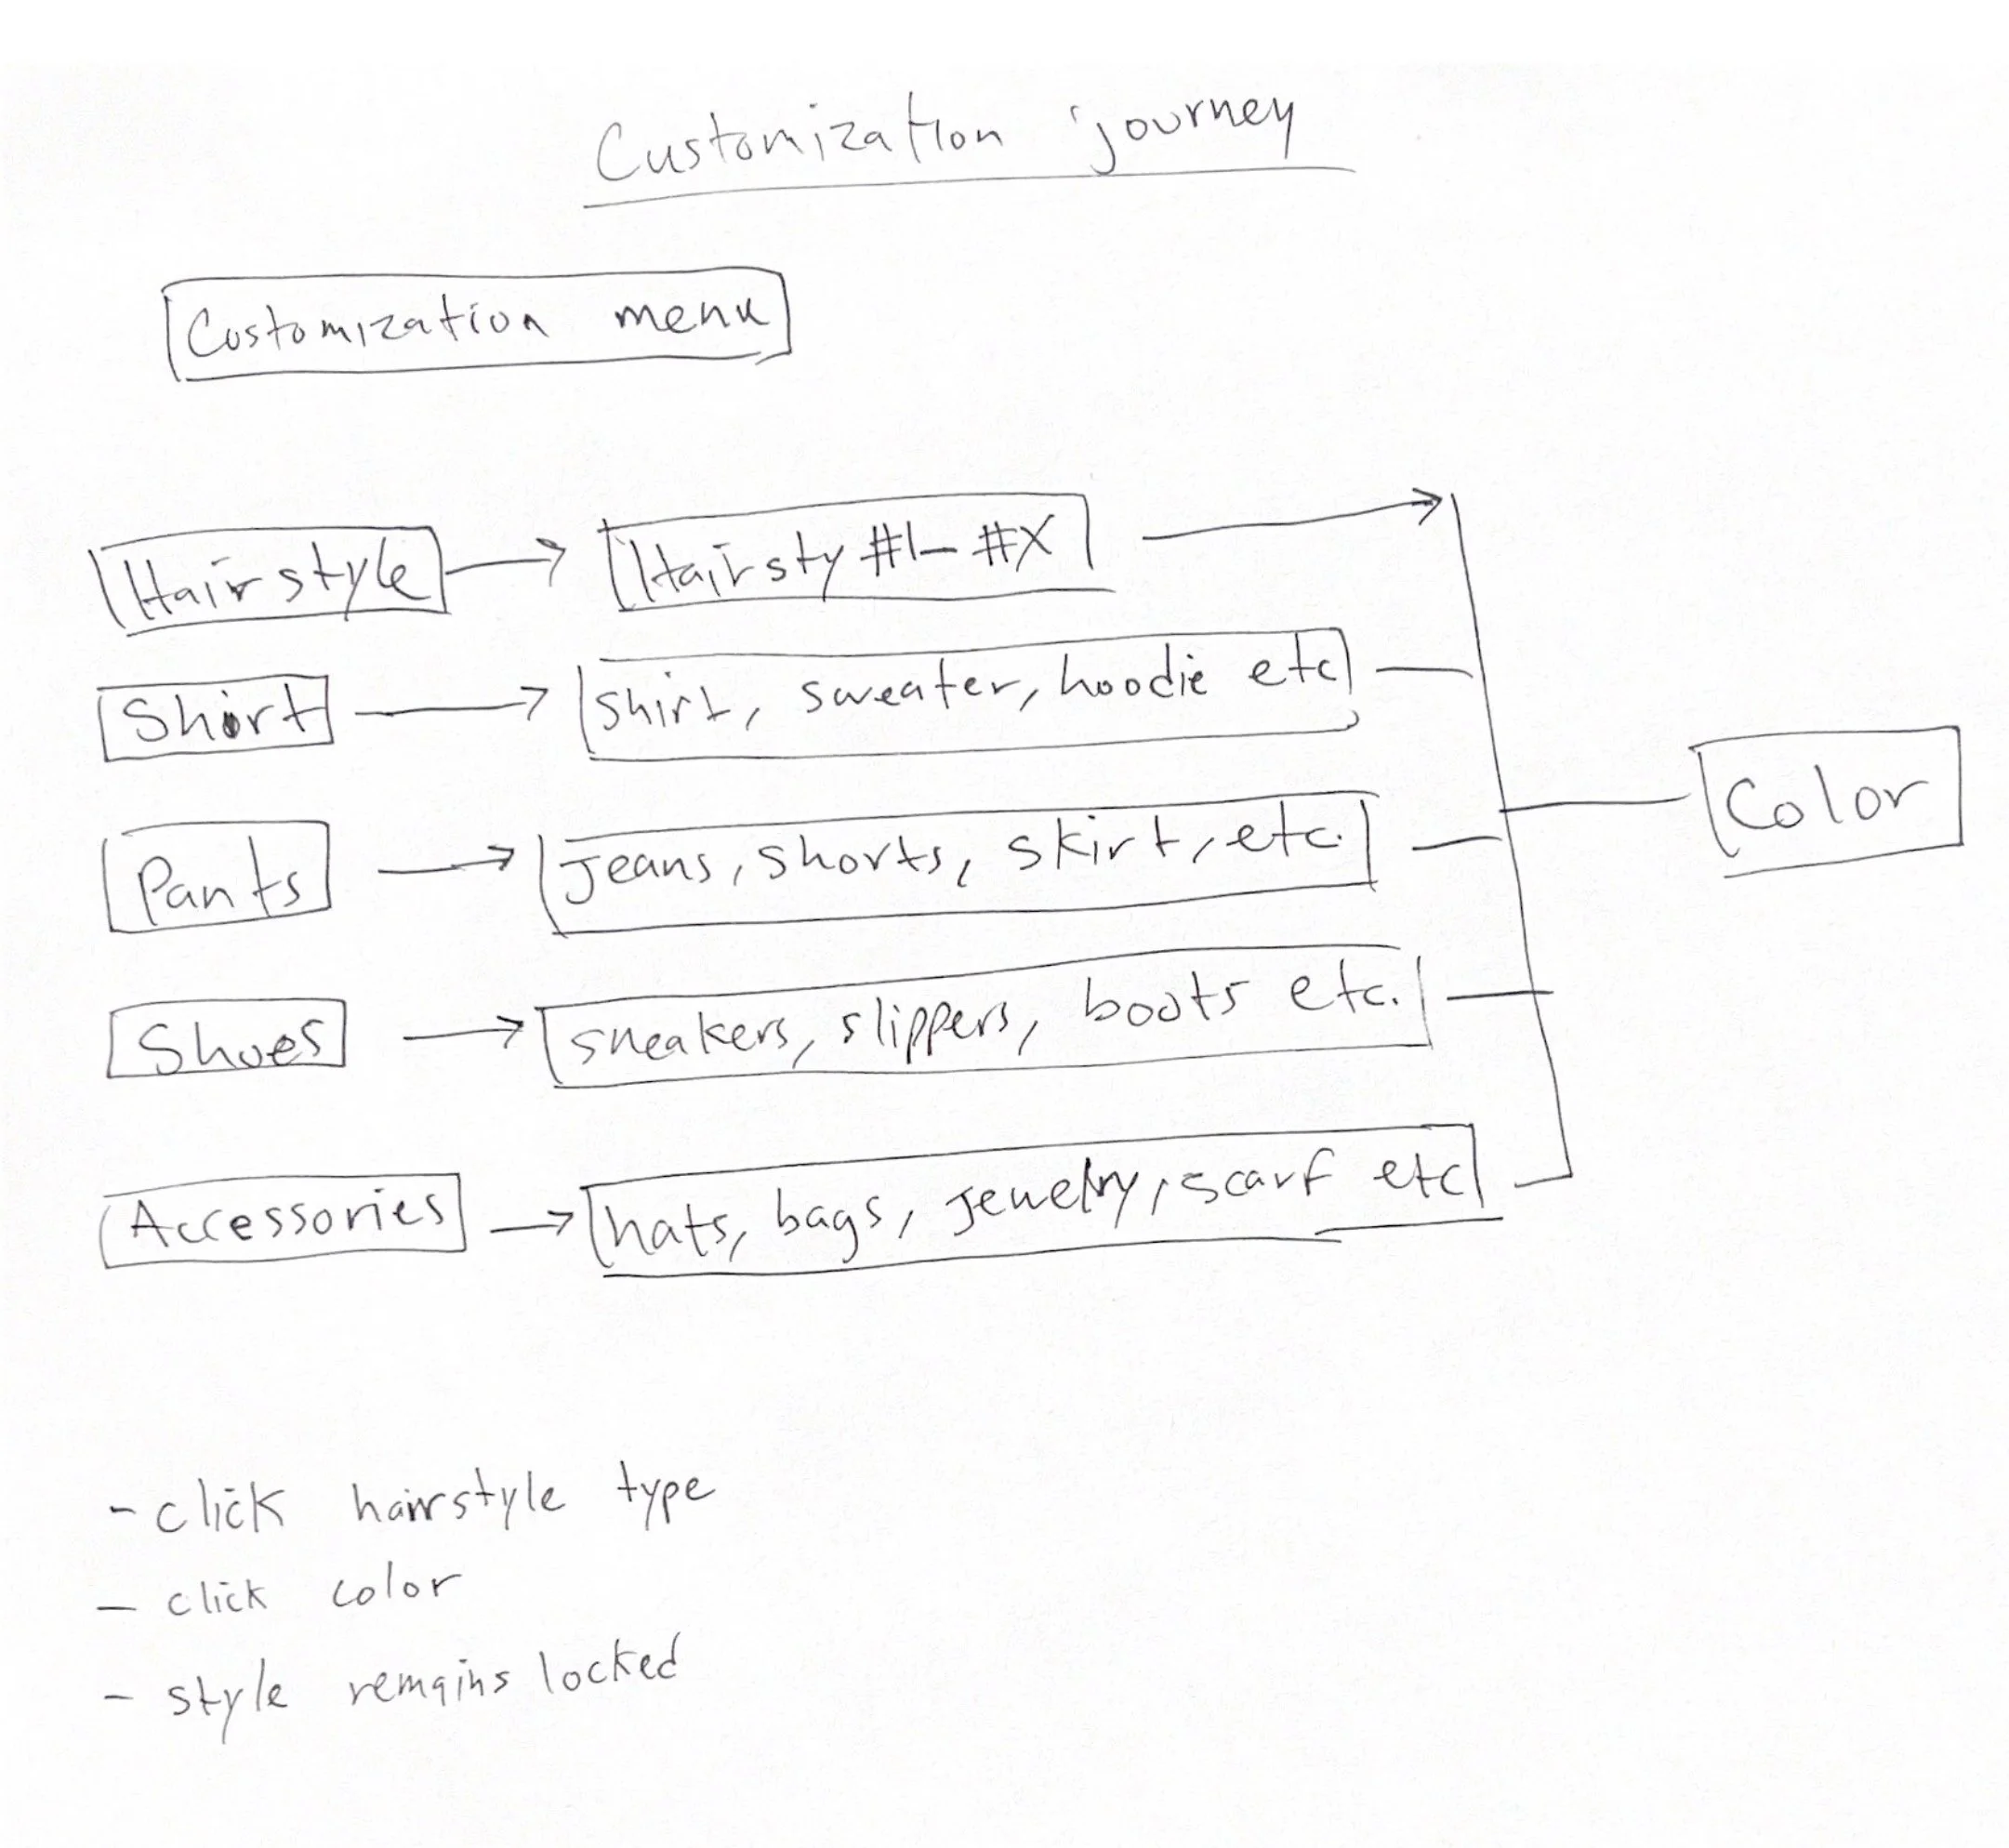 Customization journey
Customization menu
Hairstyle Hairsty #1- #X
Shirt shirt, sweater, hoodie etc
Pants Jeans, shorts, skirt, etc.
Color
Shoes sneakers, slippers, boots etc.
Accessories hats, bags, Jewelry, scarf etc
- click hairstyle type
- click color
- style remains locked